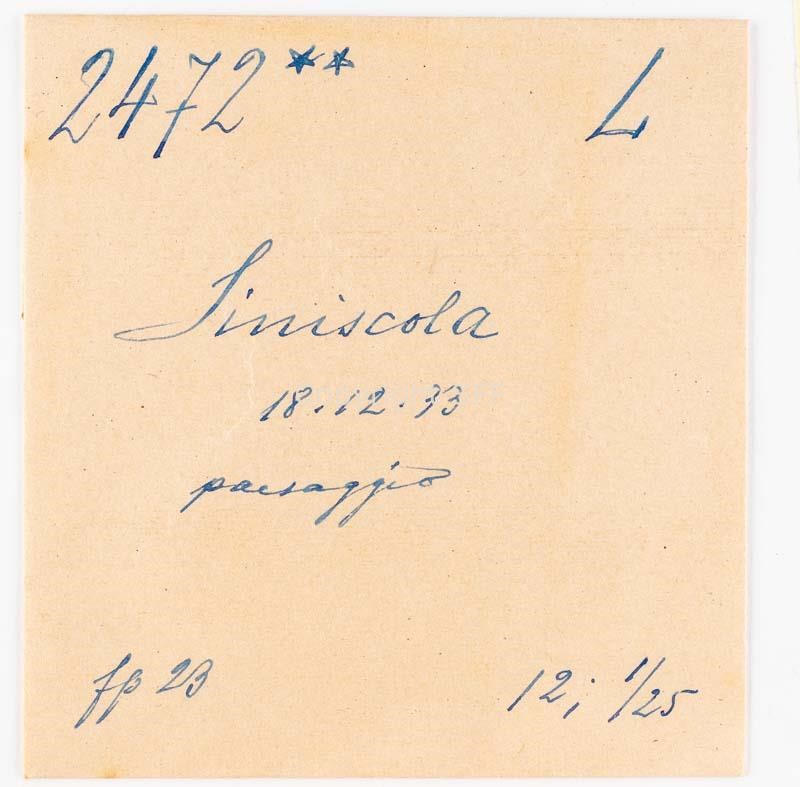 2472** L
Siniscola
18.12.33
paesaggio
fp 23
12; 1/25